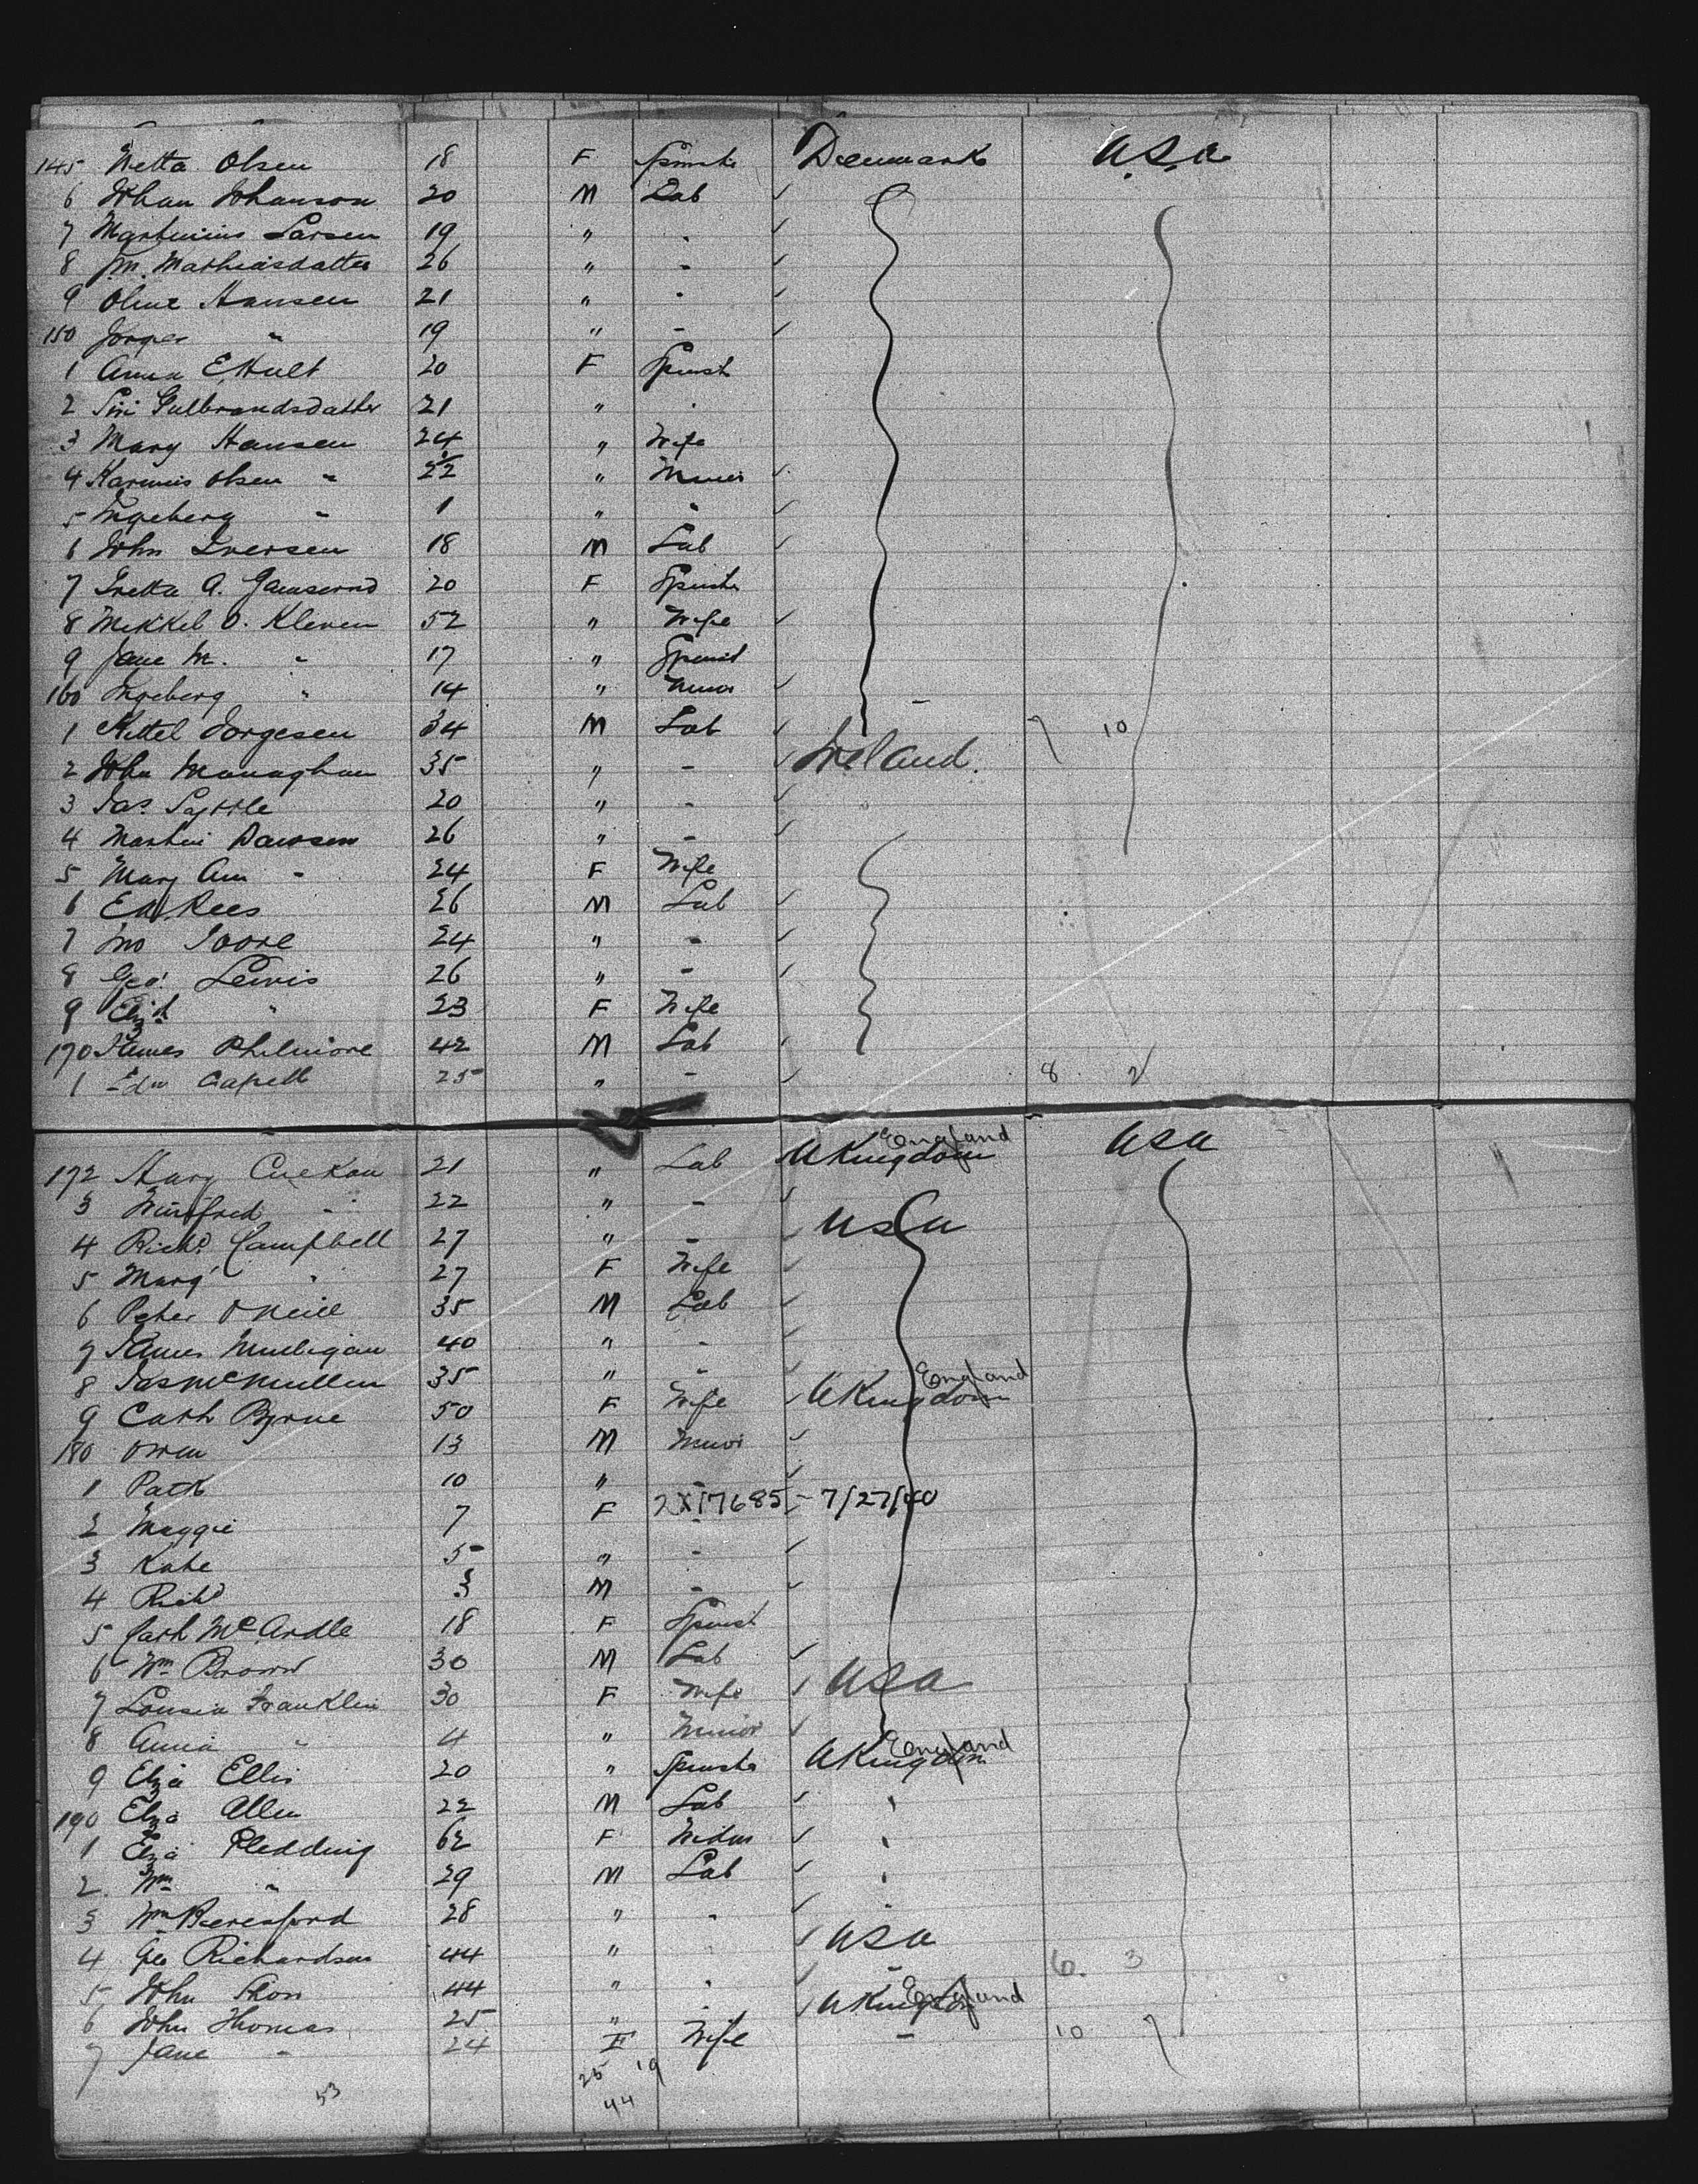 145 Netta Olsen 18 F Spinster Denmark USA
6 Johan Johanson 20 M Lab ✓
7 Martinius Larsen 19 " - ✓
8 Mathiasdatter 26 " - ✓
9 Oline Hansen 21 " - ✓
150 Jorger " 19 " - ✓
1 Anna E. Hult 20 F Spinst
2 Siri Gulbrandsdatter 21 " -
3 Mary Hansen 24 " Wife
4 Olsen " 22 " Minor ✓
5 Ingeberg " 1 " " ✓
6 John Iversen 18 M Lab ✓
7 A. 20 F Spinster
8 Mikkel O. Kleven 52 " Wife ✓
9 Jane M. " 17 " Spinst
160 Ingeberg " 14 " Minor ✓
1 Kittel Jorgesen 34 M Lab ✓ 7 10
2 John Monaghan 35 " - ✓ Ireland.
3 Jas. 20 " - ✓
4 Martin Dawson 26 " - ✓
5 Mary Ann " 24 F Wife
6 Ed. Rees 26 M Lab ✓
7 Jno 24 " - ✓
8 Geo. Lewis 26 " - ✓
9 Eliz. " 23 F Wife
170 James Philmore 42 M Lab ✓
1 Edw Capell 25 " - ✓ 8 2
172 21 " Lab UKingdom England USA
3 Winifred " 22 " - ✓
4 Richd Campbell 27 " - ✓ USA
5 Marg " 27 F Wife ✓
6 Peter O'Neill 35 M Lab ✓
7 James Mulligan 40 " - ✓
8 Jas McMullen 35 " - ✓
9 Cath Byrne 50 F Wife ✓ UKingdom England
180 Owen 13 M Minor ✓
1 Patk 10 " - ✓
2 Maggie 7 F 2X17685 - 7/27/40
3 Kate 5 " - ✓
4 Richd 3 M - ✓
5 Cath McArdle 18 F Spinst
6 Wm Brown 30 M Lab ✓
7 Lousia Franklin 30 F Wife ✓ USA
8 Annia " 4 " Minor ✓
9 Eliza Ellis 20 " Spinster UKingdom England
190 Eliza Allen 22 M Lab ✓
1 Eliza Pledding 62 F Widow ✓
2 Wm " 29 M Lab ✓
3 Wm Beresford 28 " - ✓
4 Geo Richardson 44 " - ✓ USA 6. 3
5 John 44 " - ✓ -
6 John Thomas 25 " - ✓ UKingdom England
7 Jane " 24 F Wife - 10 7
25 19
53 44